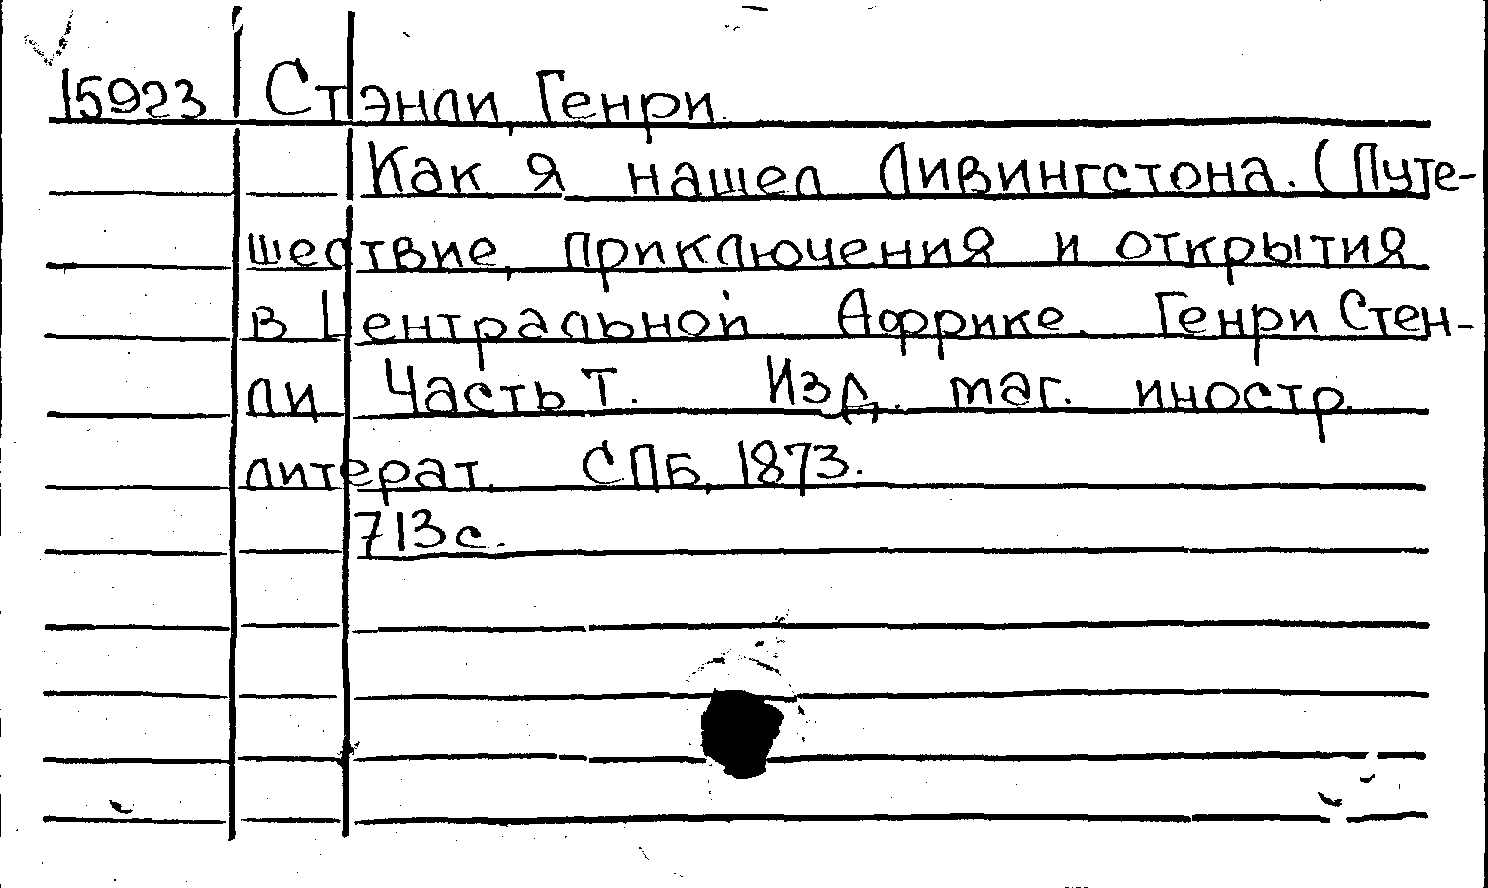 15923 Стэнли, Генри.
Как я нашел Ливингстона. (Путе-
шествие, приключения и открытия
в Центральной Африке. Генри Стен-
ли Часть I. Изд. маг. иностр.
литерат. СПБ, 1873.
713 с.